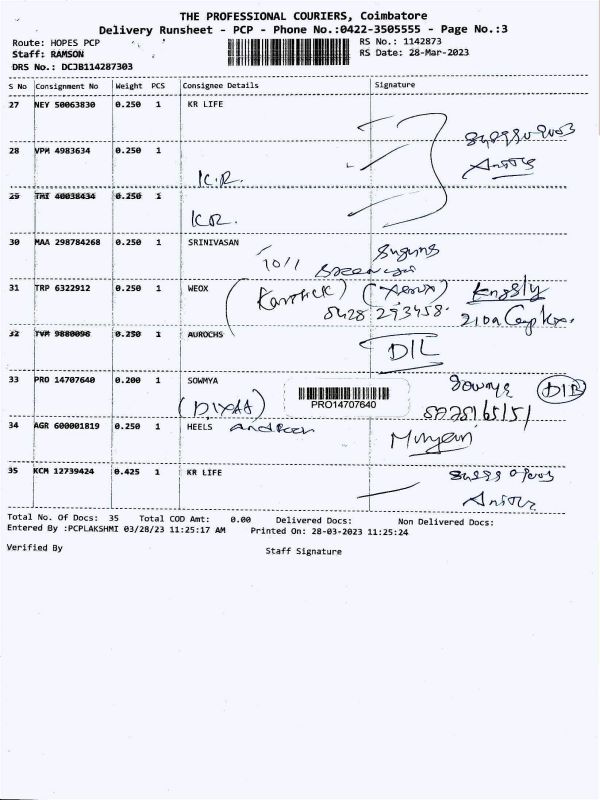 THE PROFESSIONAL COURIERS, Coimbatore
Delivery Runsheet - PCP - Phone No.:0422-3505555 - Page No.:3
Route: HOPES PCP
Staff: RAMSON
DRS No.: DCJB114287303
RS No.: 1142873
RS Date: 28-Mar-2023
S No Consignment No Weight PCS Consignee Details Signature
27 NEY 50063830 0.250 1 KR LIFE
28 VPM 4983634 0.250 1
K.R.
29 TMI 40038434 0.250 1
KR.
30 MAA 298784268 0.250 1 SRINIVASAN
31 TRP 6322912 0.250 1 WEOX
(Karthick)
32 TVM 9880098 0.250 1 AUROCHS
DIL
33 PRO 14707640 0.200 1 SOWMYA
PRO14707640
34 AGR 600001819 0.250 1 HEELS
35 KCM 12739424 0.425 1 KR LIFE
Total No. Of Docs: 35 Total COD Amt: 0.00 Delivered Docs: Non Delivered Docs:
Entered By :PCPLAKSHMI 03/28/23 11:25:17 AM Printed On: 28-03-2023 11:25:24
Verified By Staff Signature